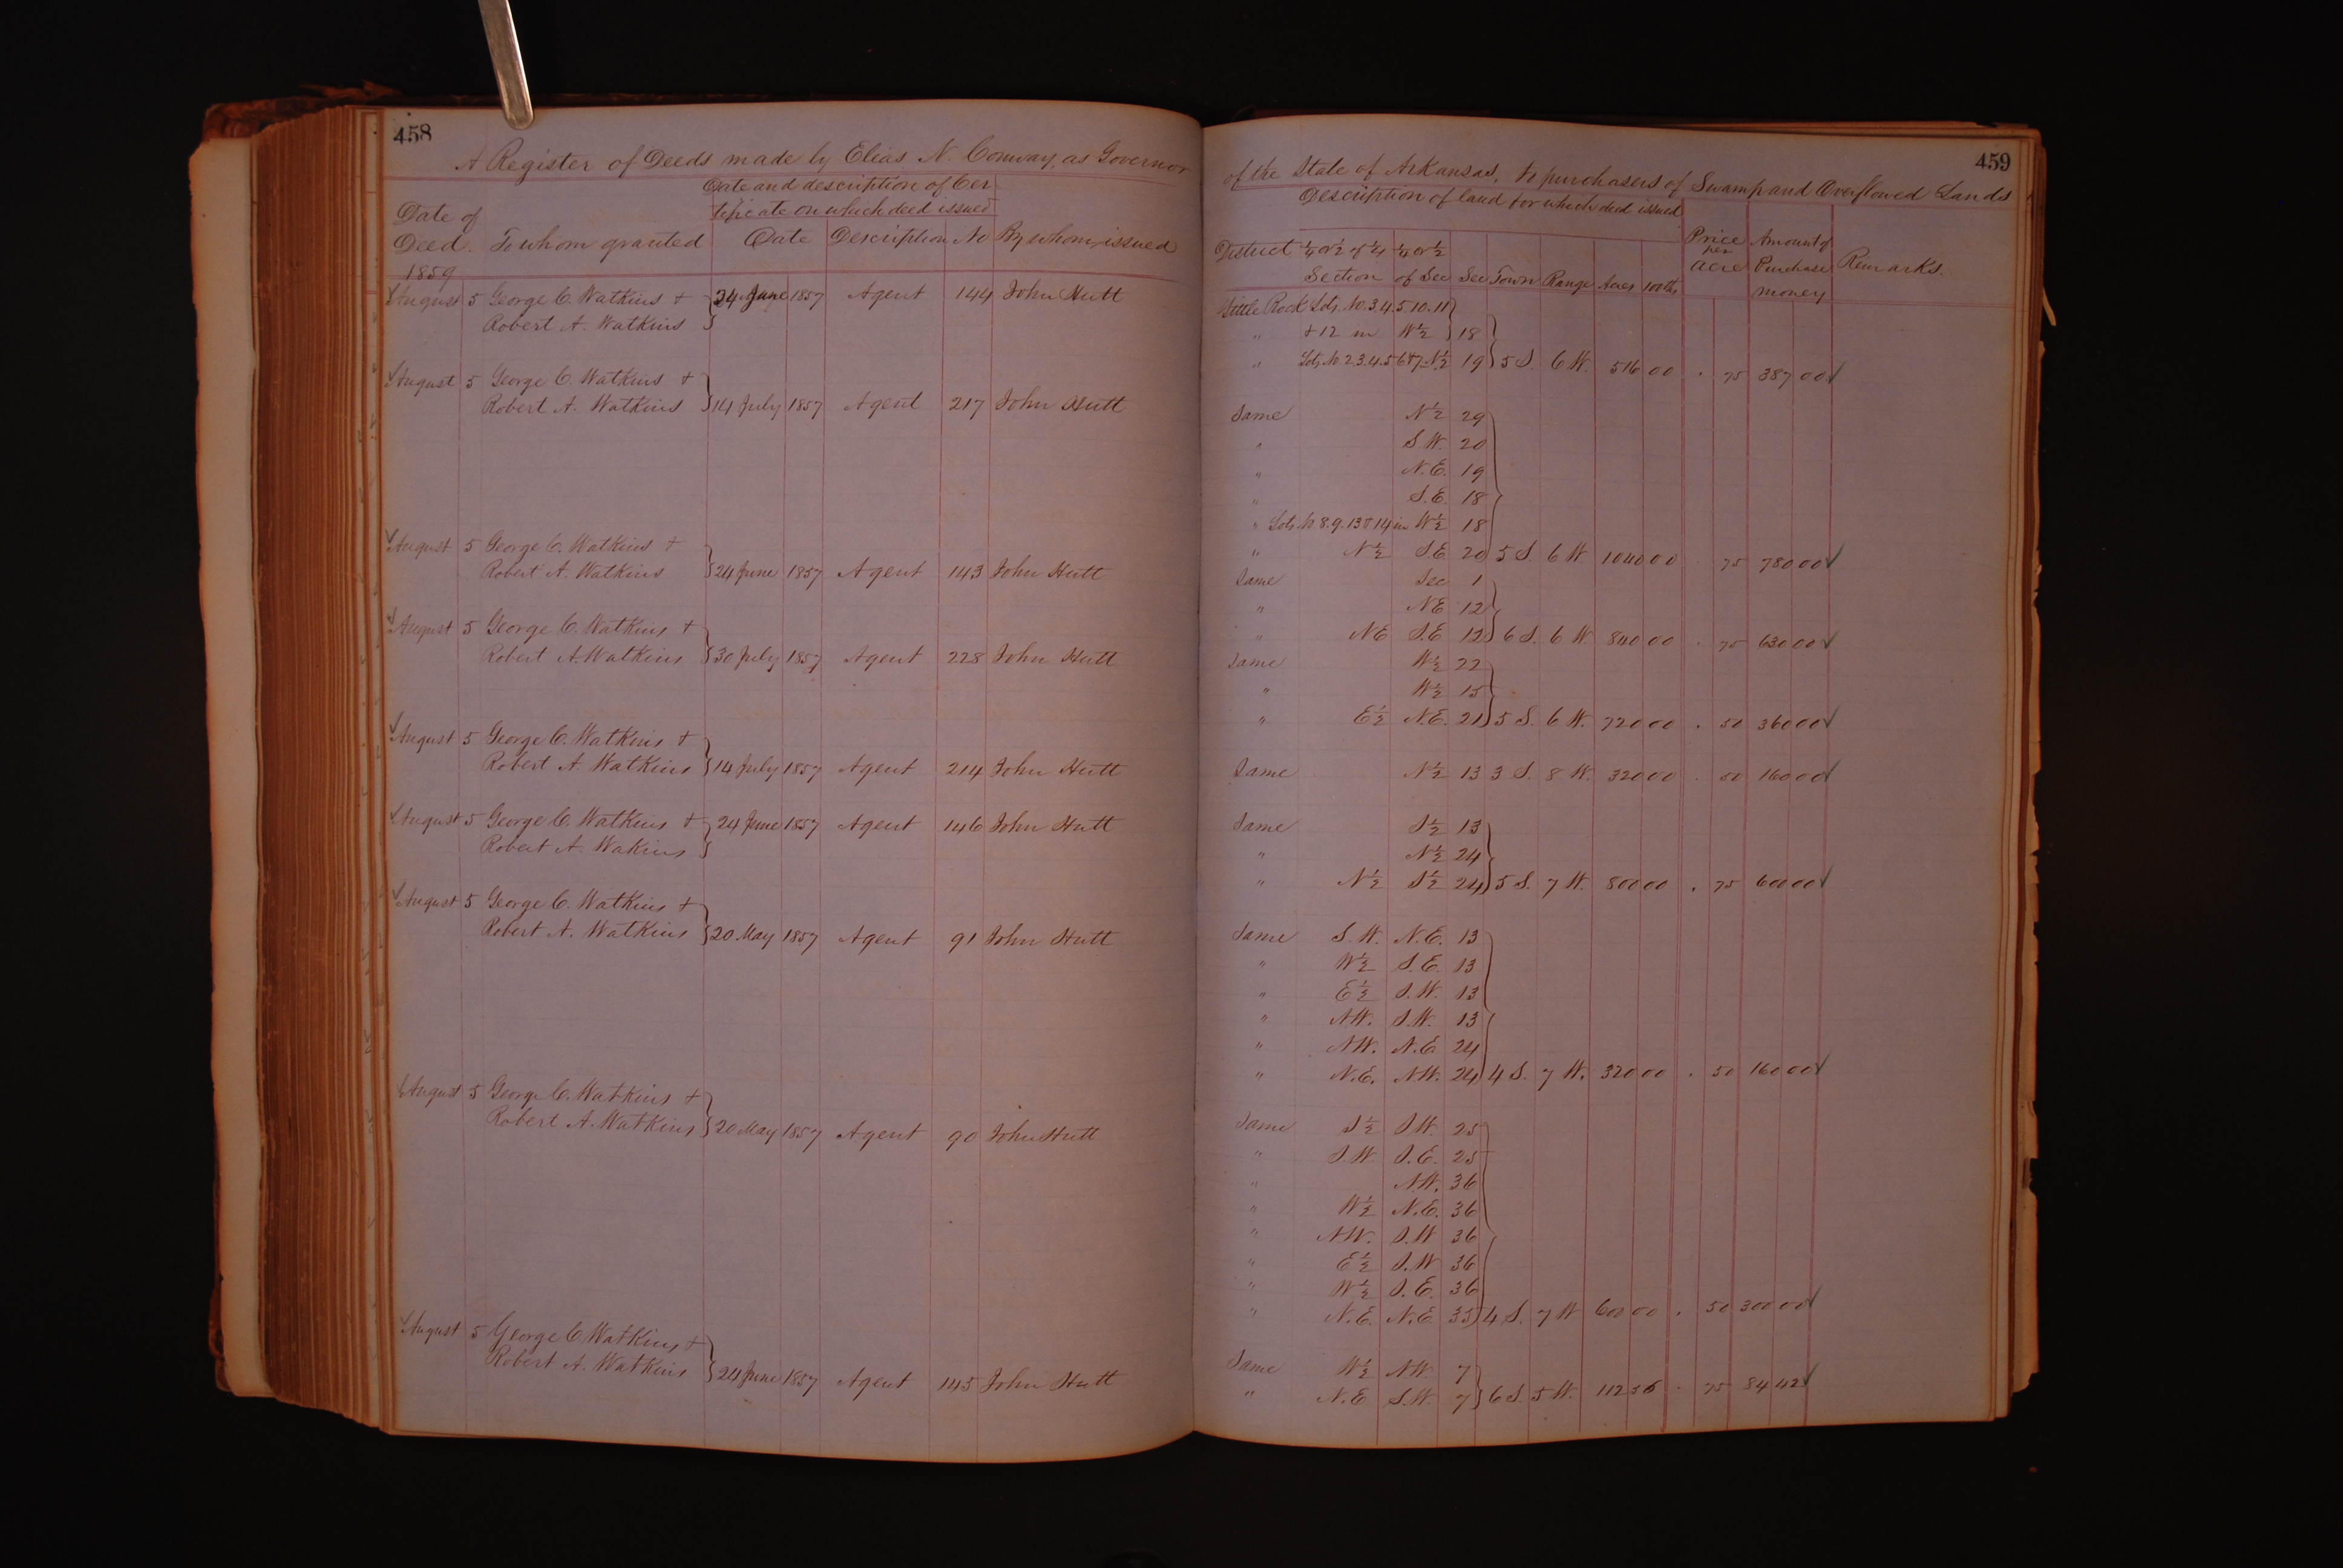 458
A Register of Deeds made by Elias N. Conway, as Governor
Date and description of Cer
tificate on which deed issued
Date of
Deed. To whom granted Date Description No By whom issued
1859
August 5 George C. Watkins + 24 June 1857 Agent 144 John Hutt
Robert A. Watkins
August 5 George C. Watkins +
Robert A. Watkins 14 July 1857 Agent 217 John Hutt
August 5 George C. Watkins +
Robert A. Watkins 24 June 1857 Agent 143 John Hutt
August 5 George C. Watkins +
Robert A. Watkins 30 July 1857 Agent 228 John Hutt
August 5 George C. Watkins +
Robert A. Watkins 14 July 1857 Agent 214 John Hutt
August 5 George C. Watkins + 24 June 1857 Agent 146 John Hutt
Robert A. Wakins
August 5 George C. Watkins +
Robert A. Watkins 20 May 1857 Agent 91 John Hutt
August 5 George C. Watkins +
Robert A. Watkins 20 May 1857 Agent 90 John Hutt
August 5 George C Watkins +
Robert A. Watkins 24 June 1857 Agent 145 John Hutt
459
of the State of Arkansas, to purchasers of Swamp and Overflowed Lands
Description of land for which deed issued
District ¼ or ½ of ¼ ¼ or ½ Price per Amount of
Section of Sec Sec Town Range Acres 100ths acre Purchase Remarks.
money
Little Rock Lots No. 3.4.5.10.11
" + 12 in W½ 18
" Lots No 2.3.4.5 6+7 N½ 19 5 S. 6 W. 516 00 . 75 387 00 ✓
Same N½ 29
" S W. 20
" N.E. 19
" S.E. 18
" Lots No 8.9.13 + 14 in W½ 18
" N½ S.E 20 5 S. 6 W 1040 00 . 75 780 00 ✓
Same Sec 1
" NE 12
" NE S.E 12 6 S. 6 W 840 00 . 75 630 00 ✓
Same W½ 22
" W½ 15
" E½ N.E. 21 5 S. 6 W. 720 00 . 50 360 00 ✓
Same N½ 13 3 S. 8 W. 320 00 . 50 160 00 ✓
Same S½ 13
" N½ 24
" N½ S½ 24 5 S. 7 W. 800 00 . 75 600 00 ✓
Same S.W. N.E. 13
" W½ S.E. 13
" E½ S.W. 13
" NW. S.W. 13
" NW. N.E 24
" N.E. NW. 24 4 S. 7 W. 320 00 . 50 160 00 ✓
Same S½ S.W. 25
" S.W. S.E. 25
" NW. 36
" W½ N.E. 36
" NW. S.W 36
" E½ S.W 36
" W½ S.E. 36
" N.E. N.E 35 4 S. 7 W 600 00 . 50 300 00 ✓
Same W½ NW. 7
" N.E S.W. 7 6 S. 5 W. 112 56 . 75 84 42 ✓